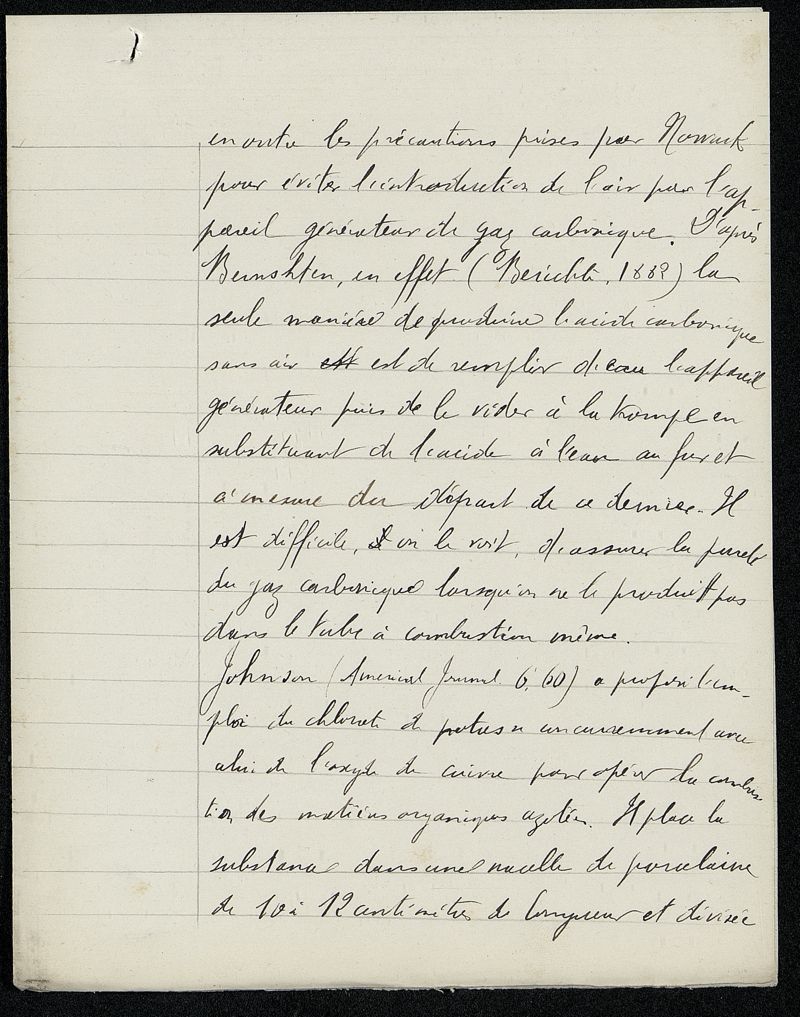 en outre les précautions prises par Nowack
pour éviter l'introduction de l'air par l'ap-
pareil générateur de gaz carbonique. D'après
Bernshten, en effet (Berichte, 1882) la
seule manière de produire l'acide carbonique
sans air est de remplir d'eau l'appareil
générateur puis de le vider à la trompe en
substituant de l'acide à l'eau au fur et
à mesure du départ de ce dernier. Il
est difficile, on le voit, d'assurer la pureté
du gaz carbonique lorsqu'on ne le produit pas
dans le tube à combustion même.
Johnson (American Journal. 6, 60) a proposé l'em-
ploi du chlorate de potasse concurremment avec
celui de l'oxyde de cuivre pour opérer la combus
tion des matières organiques azotées. Il place la
substance dans une nacelle de porcelaine
de 10 à 12 centimètres de longueur et divisée